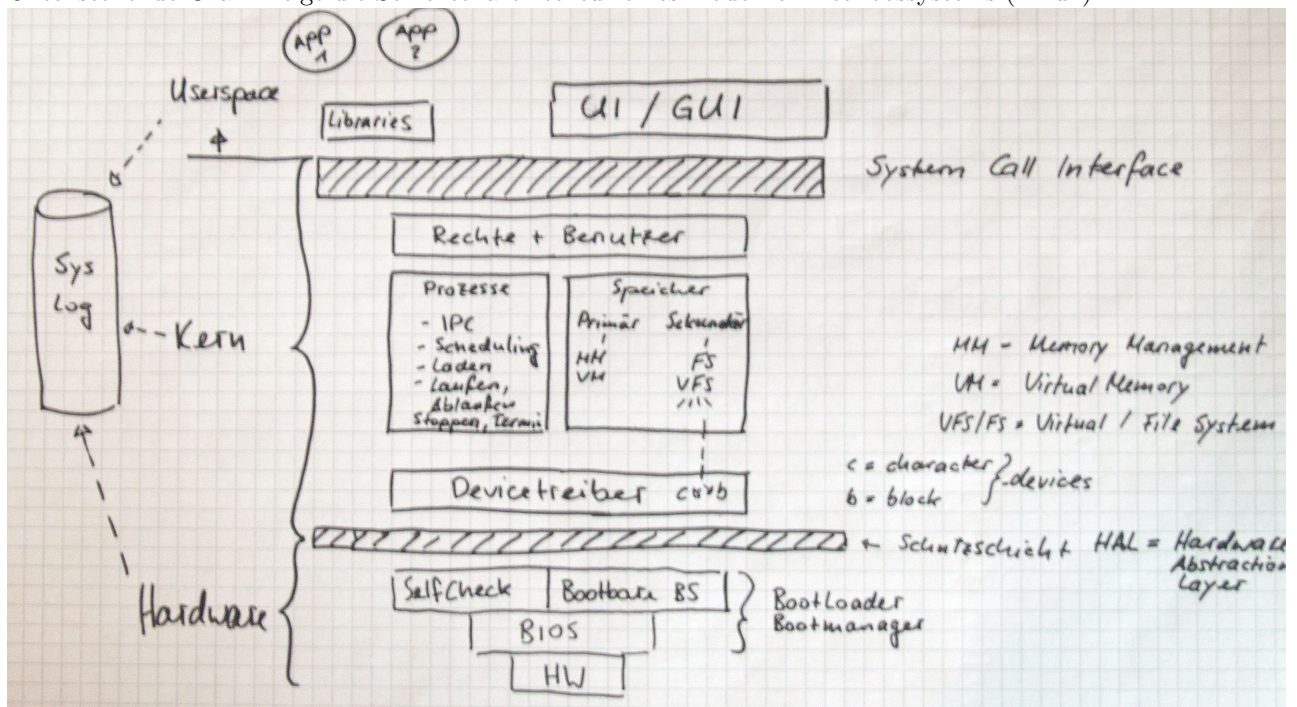 App
1
App
2
Userspace
Libraries
UI / GUI
System Call Interface
Rechte + Benutzer
Sys
Log
Kern
Prozesse
- IPC
- Scheduling
- Laden
- Laufen,
Ablaufen
Stoppen, Termin
Speicher
Primär Sekundär
MM FS
VM VFS
MM - Memory Management
VM = Virtual Memory
VFS/FS = Virtual / File System
c = character
b = block
devices
Devicetreiber c o r b
← Schutzschicht HAL = Hardware
Abstraction
Layer
Hardware
SelfCheck Bootbare BS
BIOS
HW
Bootloader
Bootmanager